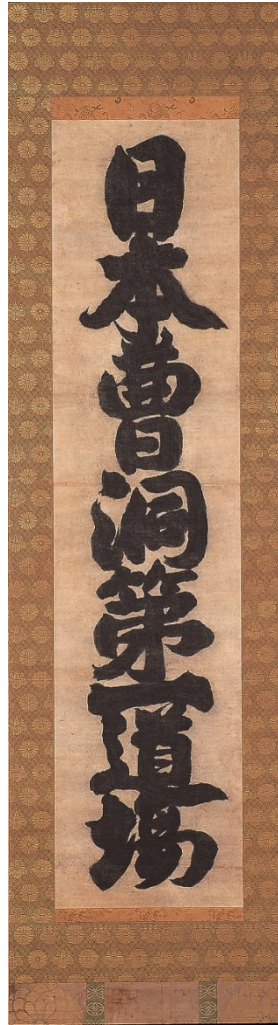 日本曹洞第一道場